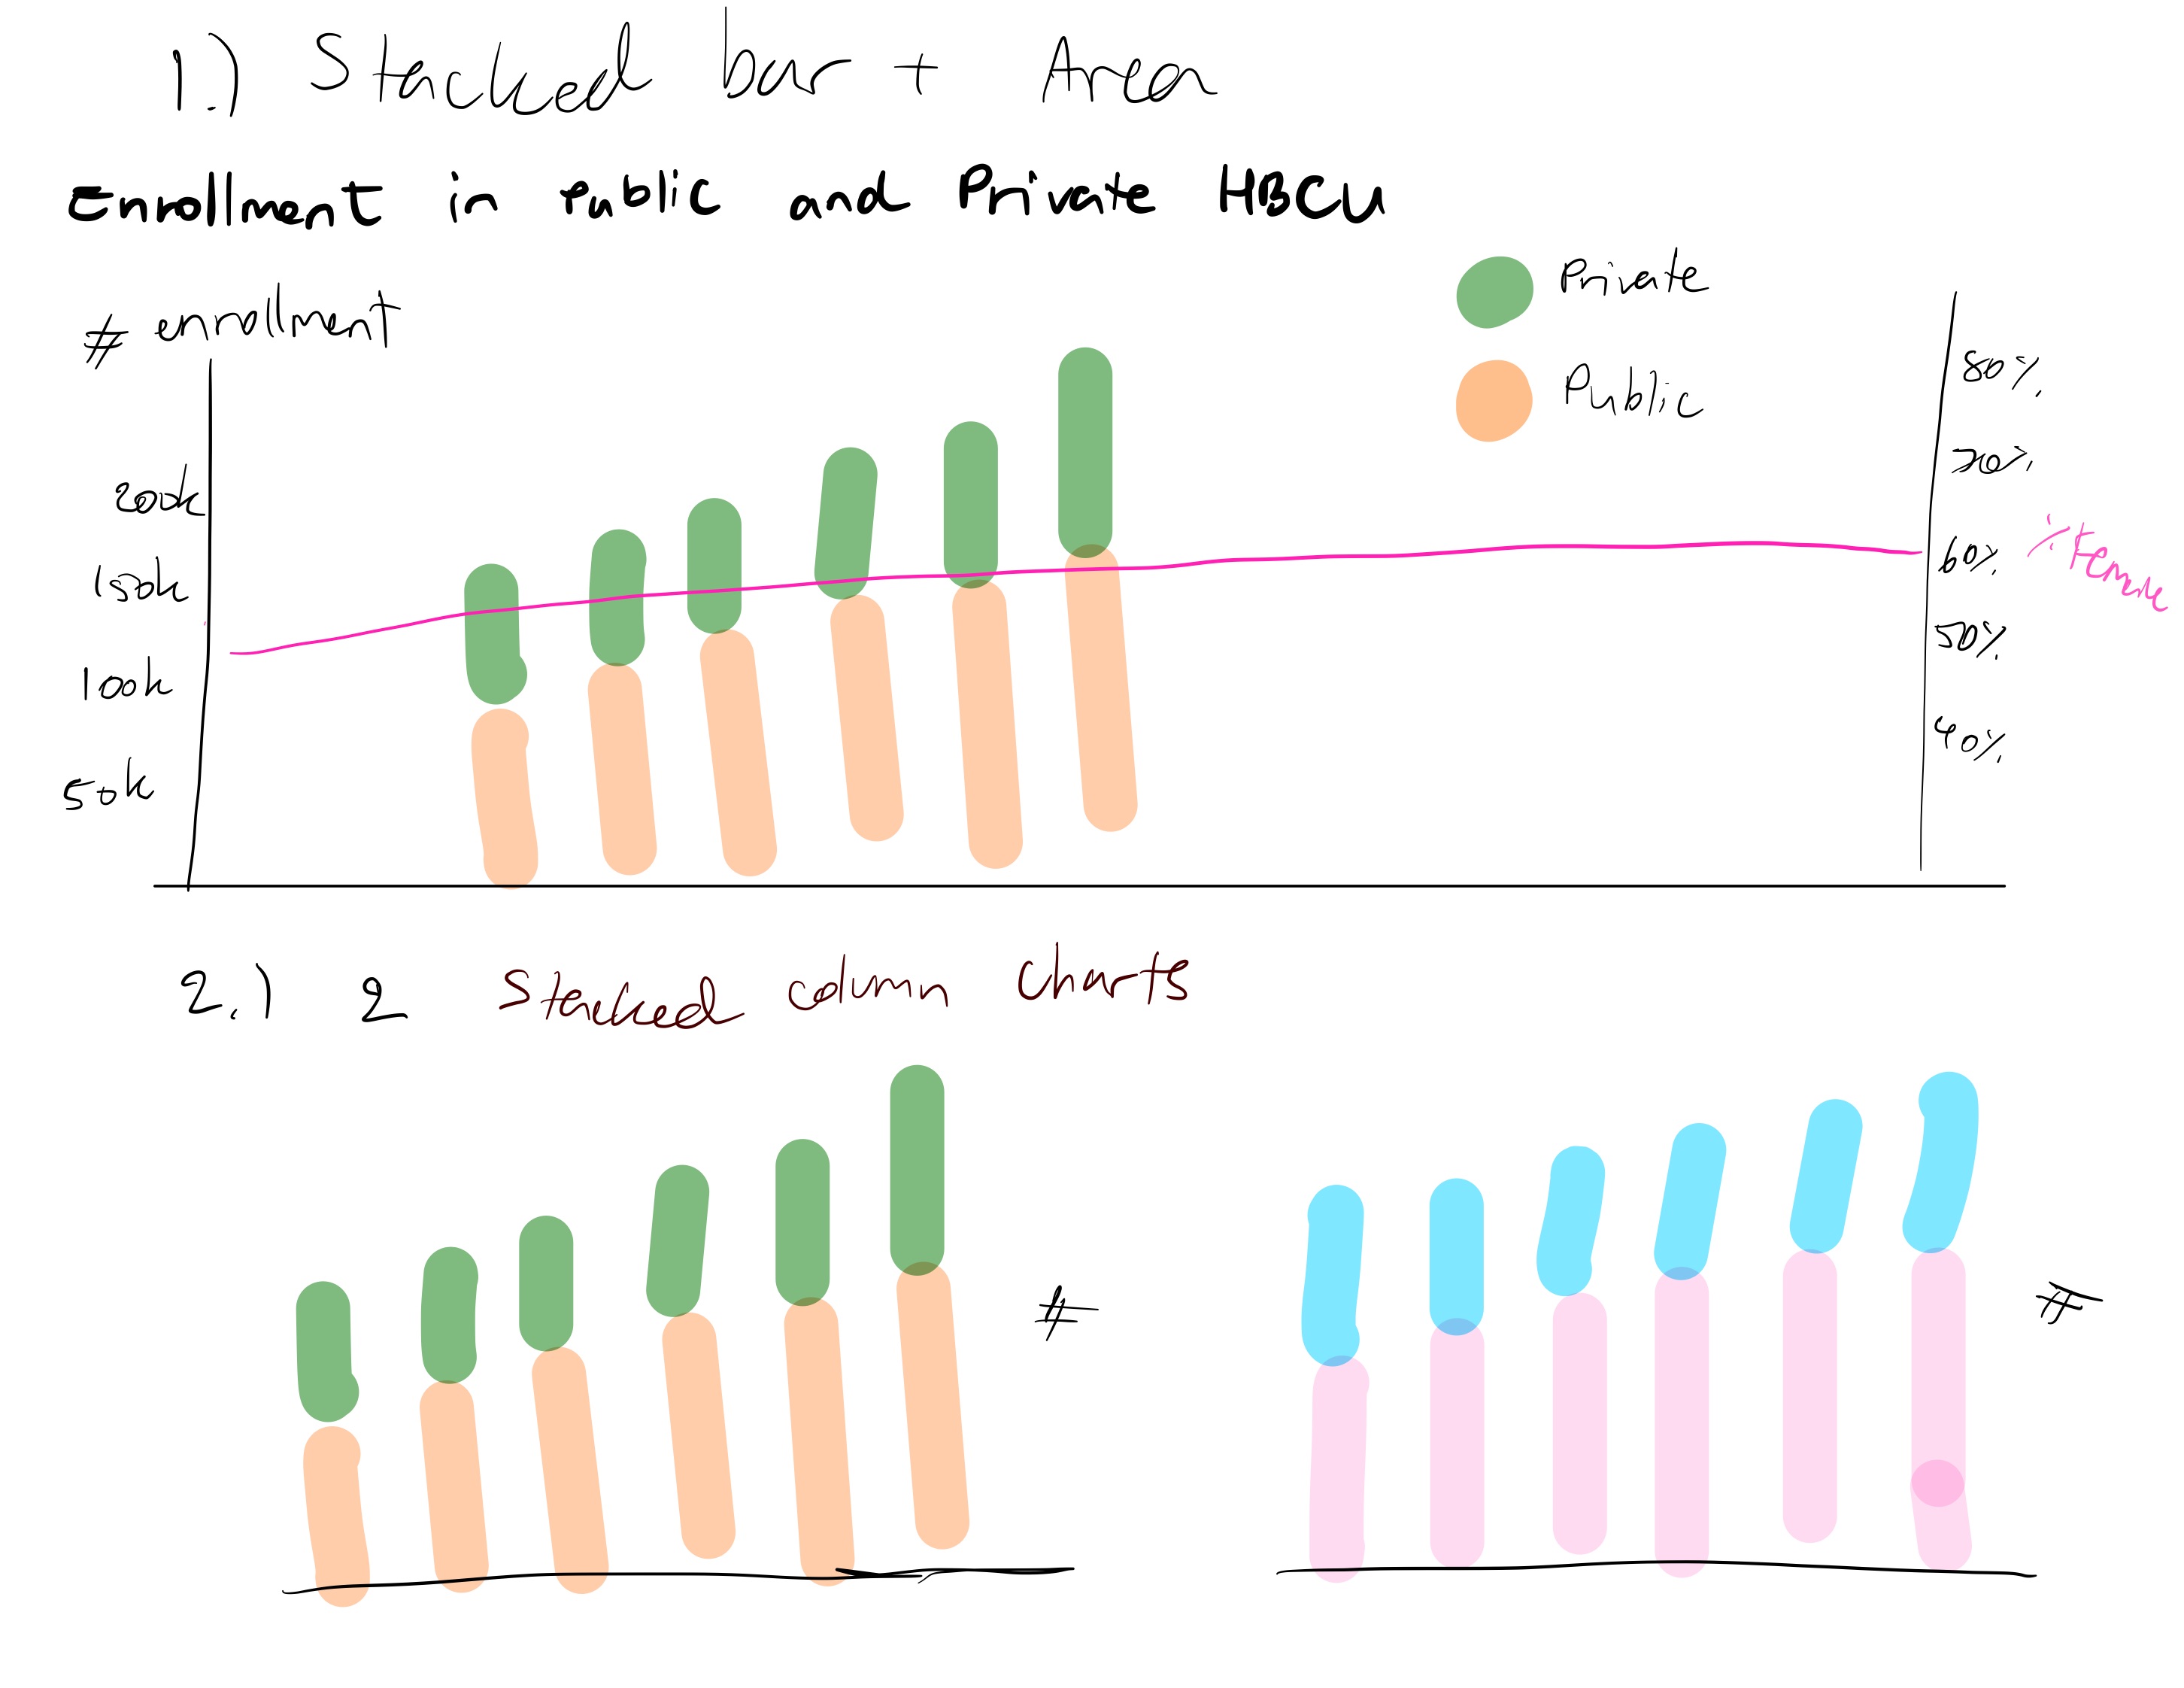 1.) Stacked bar + Area
Enrollment in Public and Private HBCU
# enrollment
Private
Public
200k
150k
100k
50k
80%
70%
60%
50%
40%
% Female
2.) 2 Stacked column Charts
#
#